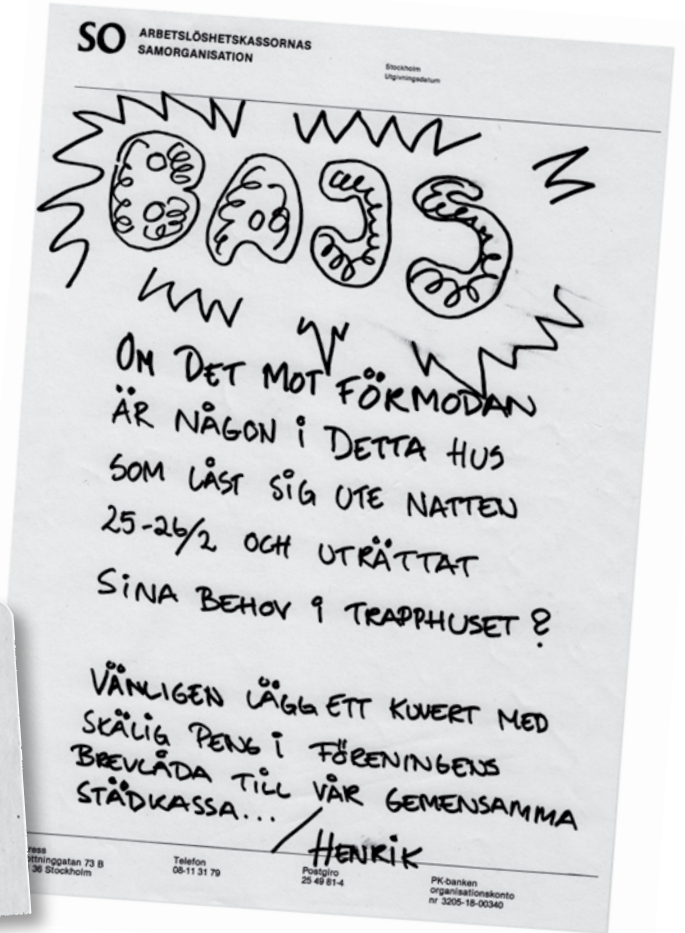 SO
ARBETSLÖSHETSKASSORNAS
SAMORGANISATION
Stockholm
Utgivningsdatum
BAJS
OM DET MOT FÖRMODAN
ÄR NÅGON I DETTA HUS
SOM LÅST SIG UTE NATTEN
25-26/2 OCH UTRÄTTAT
SINA BEHOV I TRAPPHUSET?
VÄNLIGEN LÄGG ETT KUVERT MED
SKÄLIG PENG I FÖRENINGENS
BREVLÅDA TILL VÅR GEMENSAMMA
STÄDKASSA... / HENRIK
ress
ottninggatan 73 B
36 Stockholm
Telefon
08-11 31 79
Postgiro
25 49 81-4
PK-banken
organisationskonto
nr 3205-18-00340